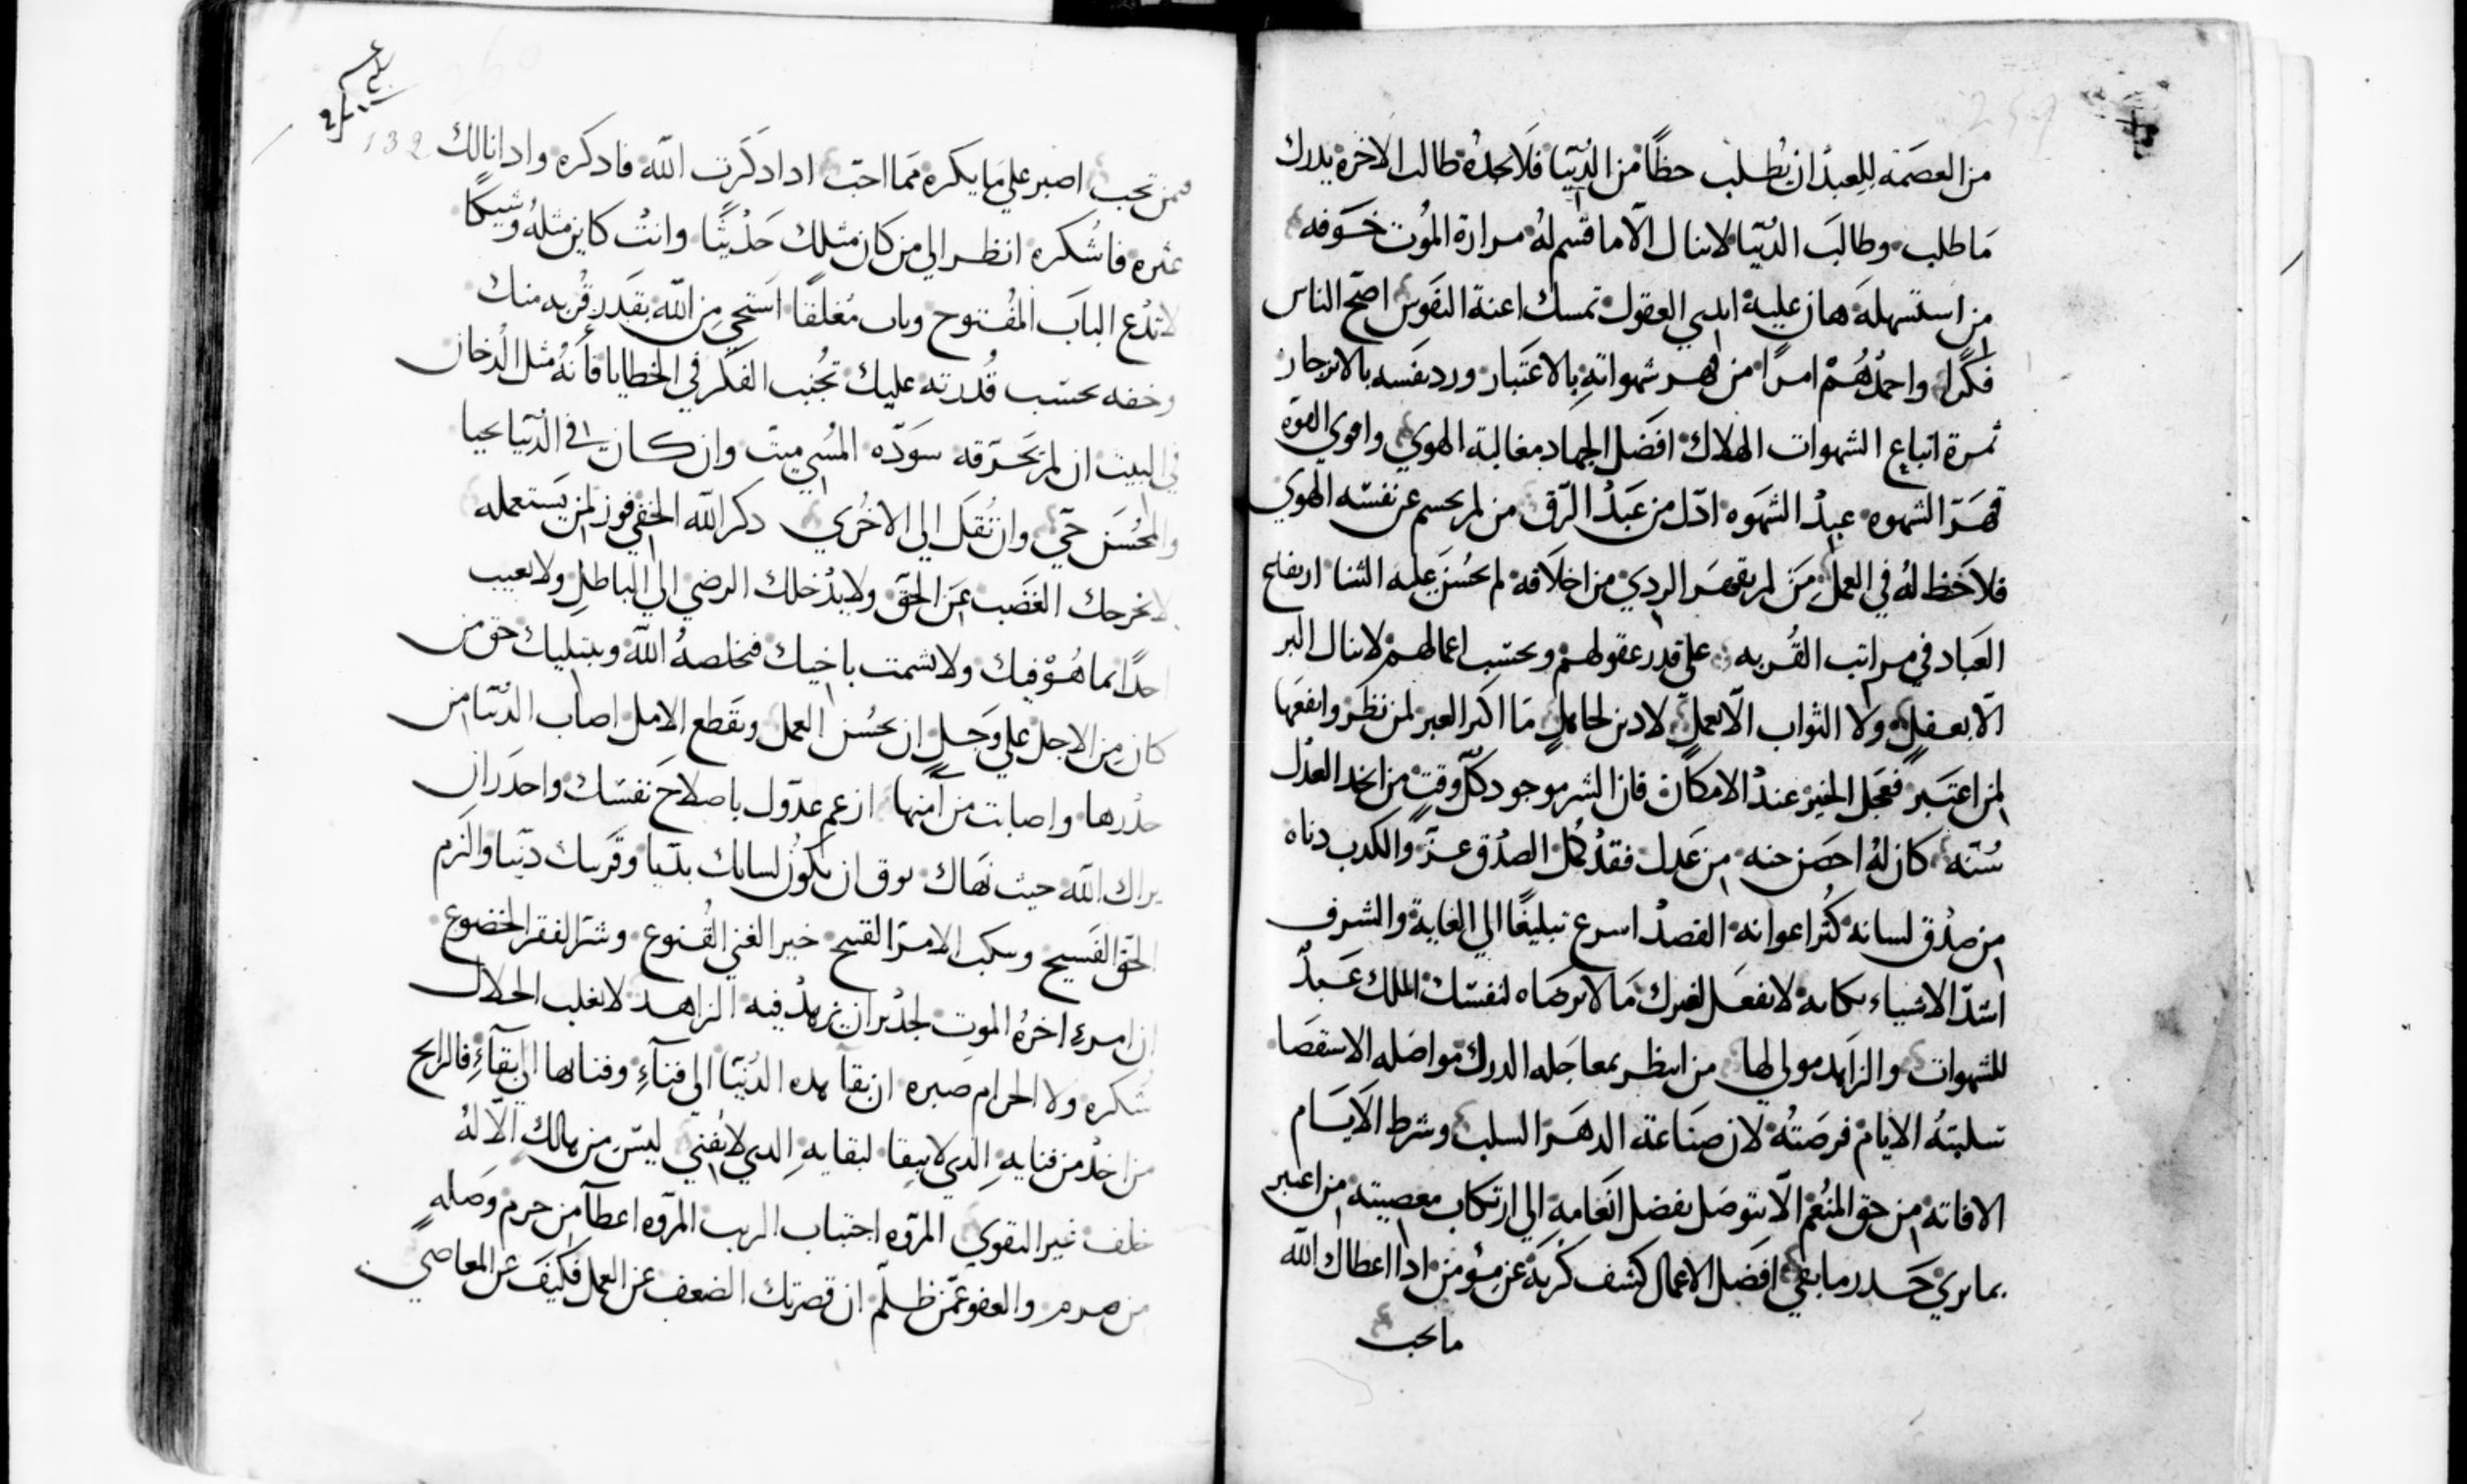 من العصمه للعبد ان يطلب حظًا من الدنيا فلا يجده طالب الاخرة يدرك
ما طلب وطالب الدنيا لا ينال الّا ما قسم له مرارة الموت خوفه
من استسهله هان عليه ايدي العقول تمسك اعنة النفوس اصح الناس
فكرًا واحمدهم امرًا من قهر شهواته بالاعتبار ورد نفسه بالازدجار
ثمرة اتباع الشهوات الهلاك افضل الجهاد مغالبة الهوي واقوي القوة
قهر الشهوه عبد الشهوه ادل من عبد الرق من لم يحسم عن نفسه الهوي
فلا حظ له في العمل من لم يقهر الردي من اخلاقه لم يحسن عليه الثنا ارتفاع
العباد في مراتب القربه علي قدر عقولهم وبحسب اعمالهم لا ينال البر
الا بعقل ولا الثواب الّا بعمل لا دين لجاهل ما اكبر العبر لمن نظر وانفعها
لمن اعتبر فعجل الخير عند الامكان فان الشر موجود كل وقت من اتخد العدل
سنّه كان له احصن جنه من عدل فقد كمل الصدق عز والكدب دناه
من صدق لسانه كثر اعوانه القصد اسرع تبليغًا الي الغاية والشرف
اشد الاشياء نكايه لا تفعل لغيرك ما لا ترضاه لنفسك الملك عبدٌ
للشهوات والزاهد مولي لها من انتظر بمعاجله الدرك مواصله الاستقصا
تسلبته الايام فرصته لان صناعة الدهر السلب وشرط الايام
الافاته من حق المنعم الّا يتوصل بفضل انعامه الي ارتكاب معصيته من اعتبر
بما يري حدر ما بقي افضل الاعمال كشف كربة عن مؤمن ادا اعطاك الله
ما تحب
132
فمن تحب اصبر علي ما يكره مما احب ادا دكرت الله فادكره وادا نالك
عثره فاشكره انظر الي من كان مثلك حديثًا وانت كاين مثله وشيكًا
لا تدع الباب المفتوح وباب مغلقًا استحي من الله بقدر قربه منك
وخفه بحسب قدرته عليك تجنب الفكر في الخطايا فأنه مثل الدخان
في البيت ان لم يحرقه سوّده المسي ميت وان كان في الدنيا يحيا
والمحسن حيّ وان نقل الي الاخري دكر الله الخفي فوز لمن يستعمله
لا يخرجك الغضب عن الحق ولا يدخلك الرضي الي الباطل ولا تعيب
احدًا بما هو فيك ولا تشمت باخيك فيخلصه الله ويبتليك حق من
كان من الاجل علي وجل ان يحسن العمل ويقطع الامل اصاب الدنيا من
حدرها واصابت من أمنها ازعم عدوّك باصلاح نفسك واحدر ان
يراك الله حيث نهاك توق ان يكون لسانك بديا وقربك دنيا والزم
الحق الفسيح وسكب الامر القبيح خير الغني القنوع وشر الفقر الخضوع
ان امرء اخره الموت لجدير ان يزهد فيه الزاهد لا يغلب الحلال
شكره ولا الحرام صبره ان بقآ هده الدنيا الي فنآءٍ وفنايها الي بقآءٍ فالرابح
من اخد من فنايه الدي لا يبقا لبقايه الدي لا يفني ليس من هالك الّا له
خلف غير التقوي المروه اجتناب الريب المروه اعطآ من حرم وصله
من صرم والعفو عمن ظلم ان قصر بك الضعف عن العمل فكيف عن المعاصي